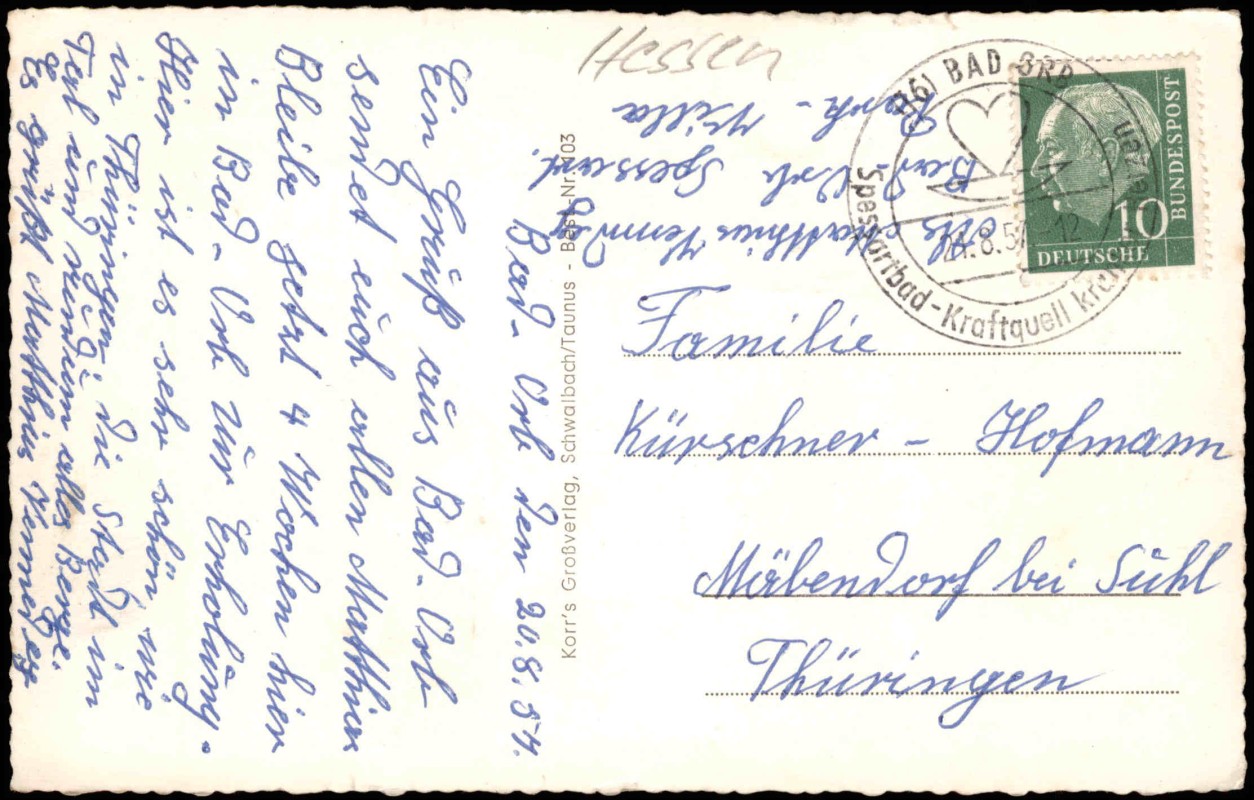 Hessen
(16) BAD ORB
Spessartbad-Kraftquell
21.8.57-12
BUNDESPOST
10
DEUTSCHE
Abs Matthius Venn
Bad Orb Spessart.
Park - Villa
Bad. Orb den 20.8.57.
Ein Gruß aus Bad. Orb
sendet euch allen Matthius
Bleibe jetzt 4 Wochen hier
in Bad. Orb zur Erholung.
Hier ist es sehr schön wie
in Thüringen: die Stadt im
Tal und rundum alles Berge.
Es grüßt Matthius
Korr's Großverlag, Schwalbach/Taunus - Best.-Nr. 403
Familie
Kürschner - Hofmann
Mäbendorf bei Suhl
Thüringen